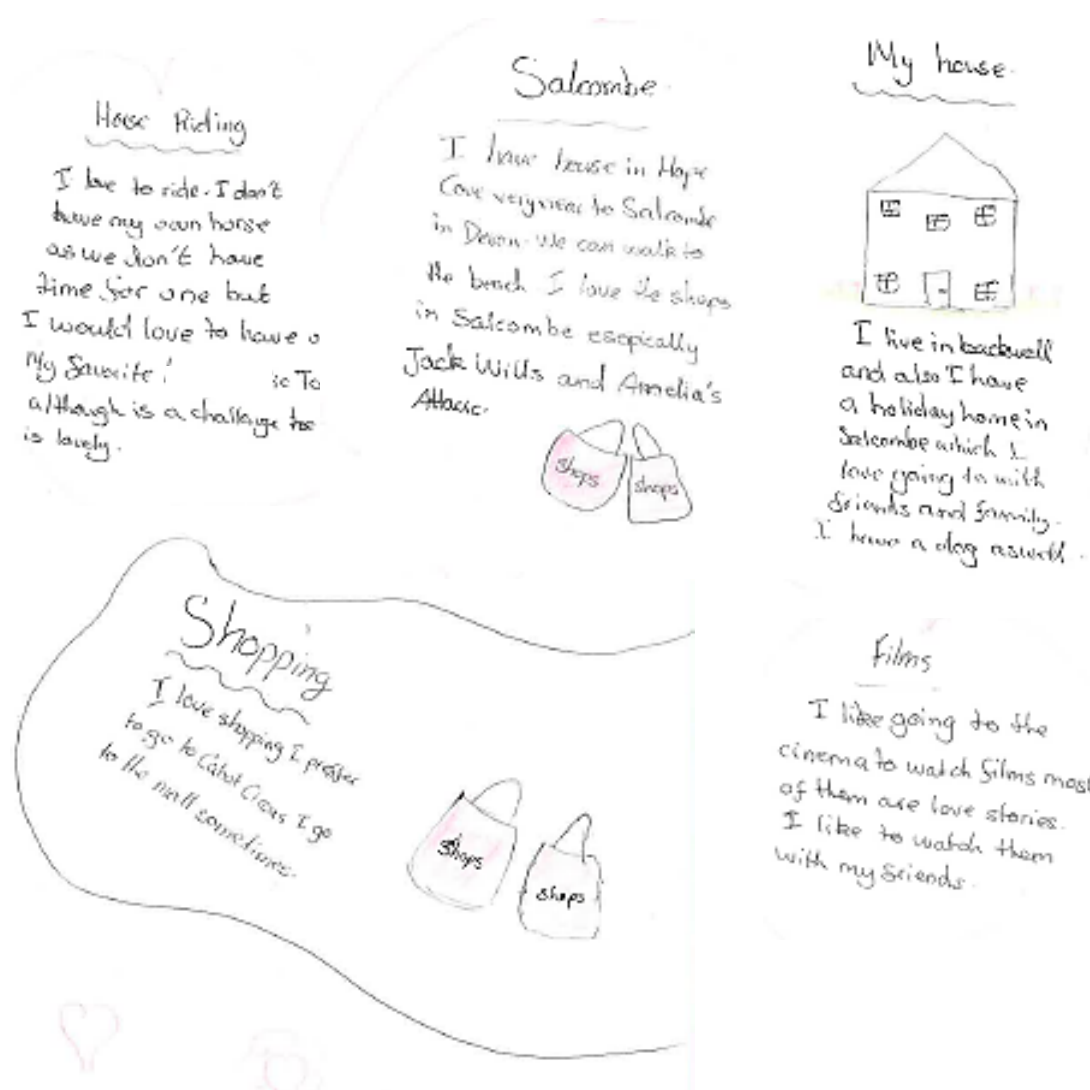 Horse Riding
I love to ride. I don't
have my own horse
as we don't have
time for one but
I would love to have a
My favorite
is To
although is a challenge
is lovely.
Salcombe.
I have house in Hope
Cove very near to Salcombe
in Devon. We can walk to
the beach I love the shops
in Salcombe esepically
Jack Wills and Amelia's
Attacic.
shops
shops
My house.
I live in backwell
and also I have
a holiday home in
Salcombe which I
love going to with
friends and family.
I have a dog aswell.
Shopping
I love shopping I preffer
to go to Cabot Circus I go
to the mall sometimes.
shops
shops
films
I like going to the
cinema to watch films most
of them are love stories.
I like to watch them
with my friends.